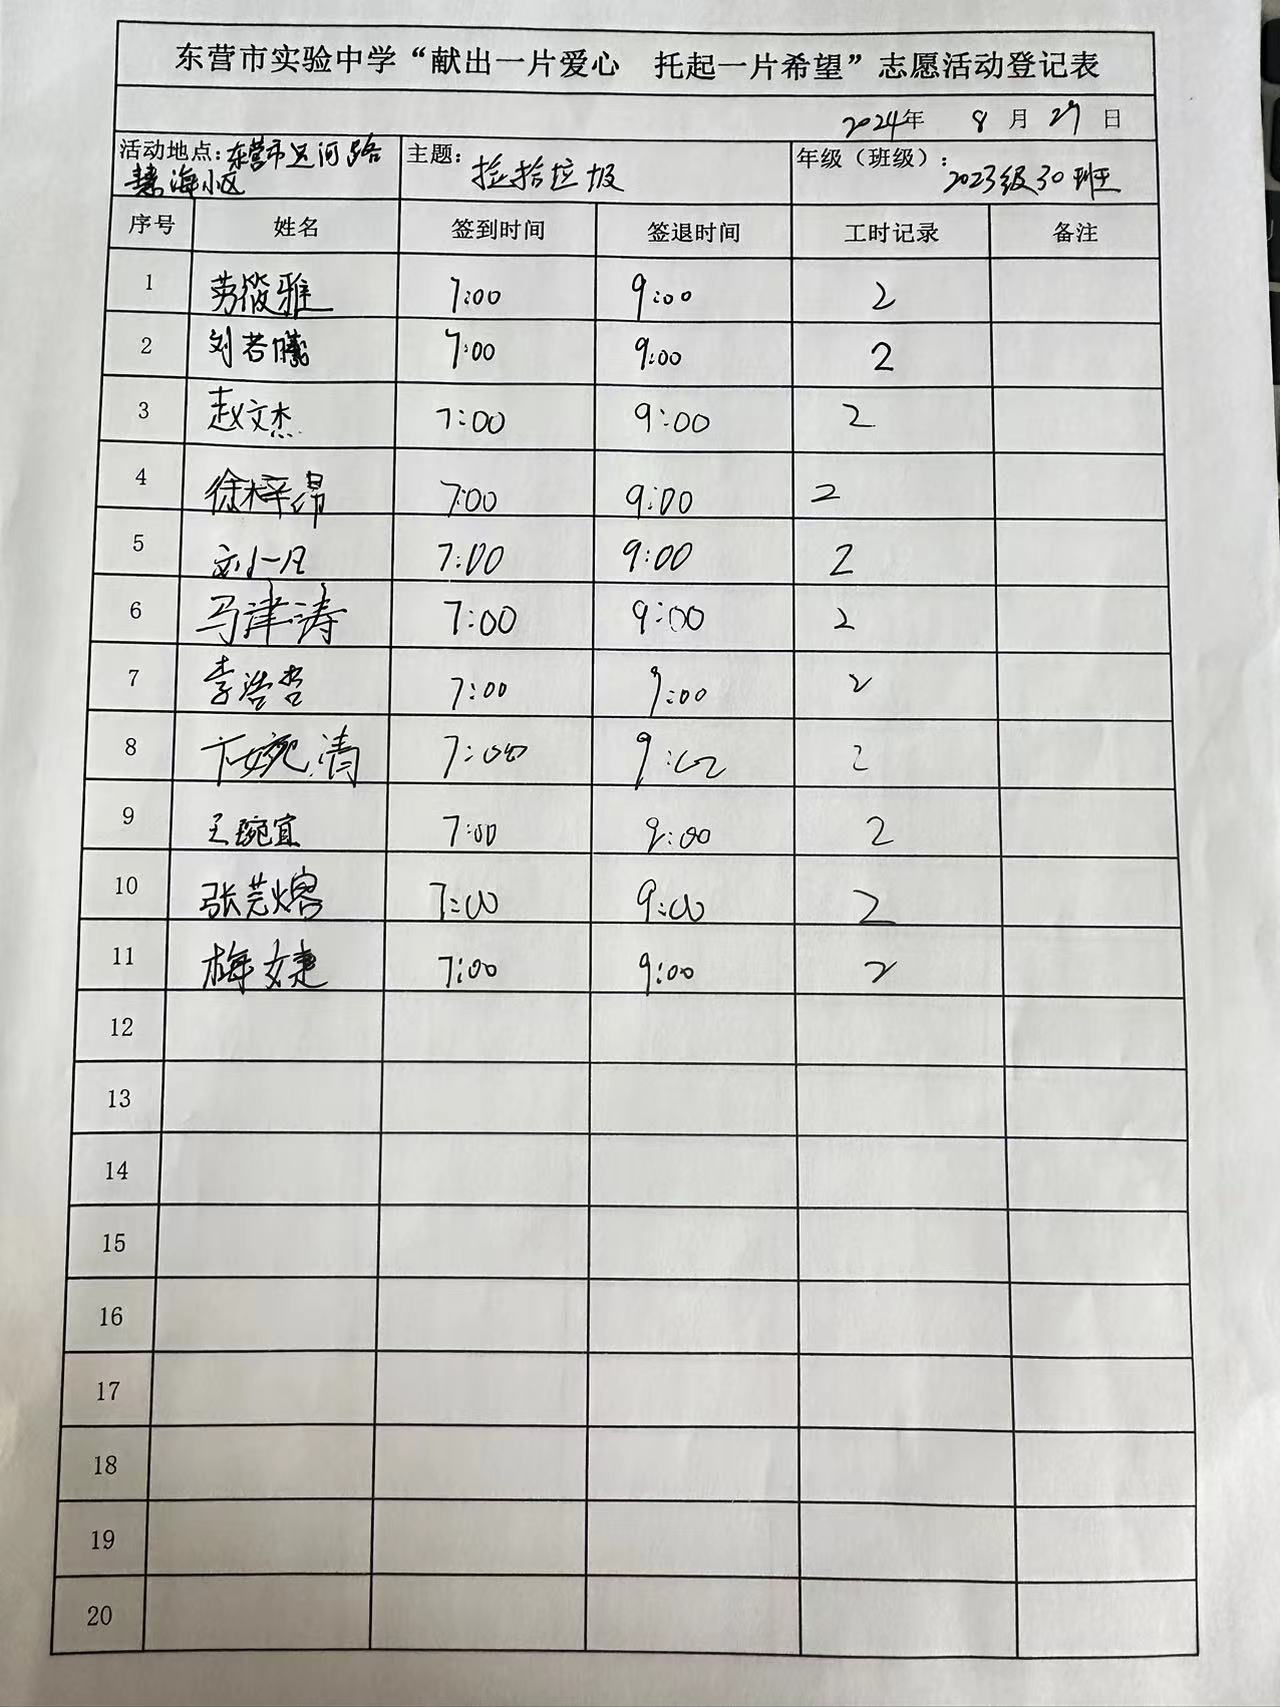 东营市实验中学“献出一片爱心 托起一片希望”志愿活动登记表
2024年 8月27日
活动地点：东营市运河路慧海小区 主题：捡拾垃圾 年级（班级）：2023级30班
序号 姓名 签到时间 签退时间 工时记录 备注
1 劳筱雅 7:00 9:00 2
2 刘若曦 7:00 9:00 2
3 赵文杰 7:00 9:00 2
4 徐梓昂 7:00 9:00 2
5 刘一凡 7:00 9:00 2
6 马津涛 7:00 9:00 2
7 李浩哲 7:00 9:00 2
8 卞婉清 7:00 9:00 2
9 王琬宜 7:00 9:00 2
10 张芸熔 7:00 9:00 2
11 梅婕 7:00 9:00 2
12
13
14
15
16
17
18
19
20